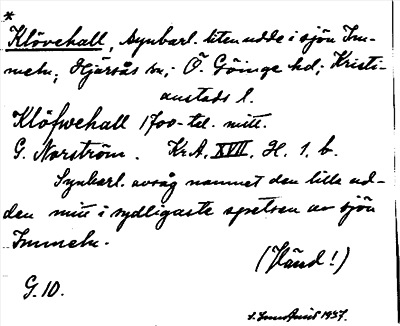 *
Klövehall, Synbarl. liten udde i sjön Im-
meln; Hjärsås sn; Ö. Göinge hd; Kristi-
anstads l.
Klöfwehall 1700-tal. mitt.
G. Norström. Kr.A. XVII, H. 1. b.
Synbarl. avsåg namnet den lilla ud-
den mitt i sydligaste spetsen av sjön
Immeln.
(Känd!)
G. 10.
1937.